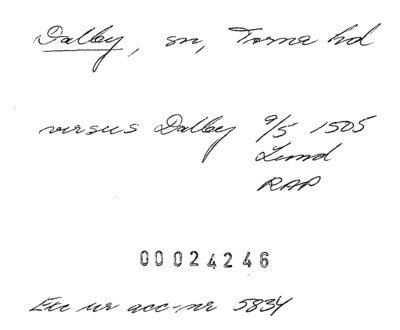 Dalby, sn, Torna hd
versus Dalby 9/5 1505
Lund
RAP
00024246
Enl ur acc-nr 5834